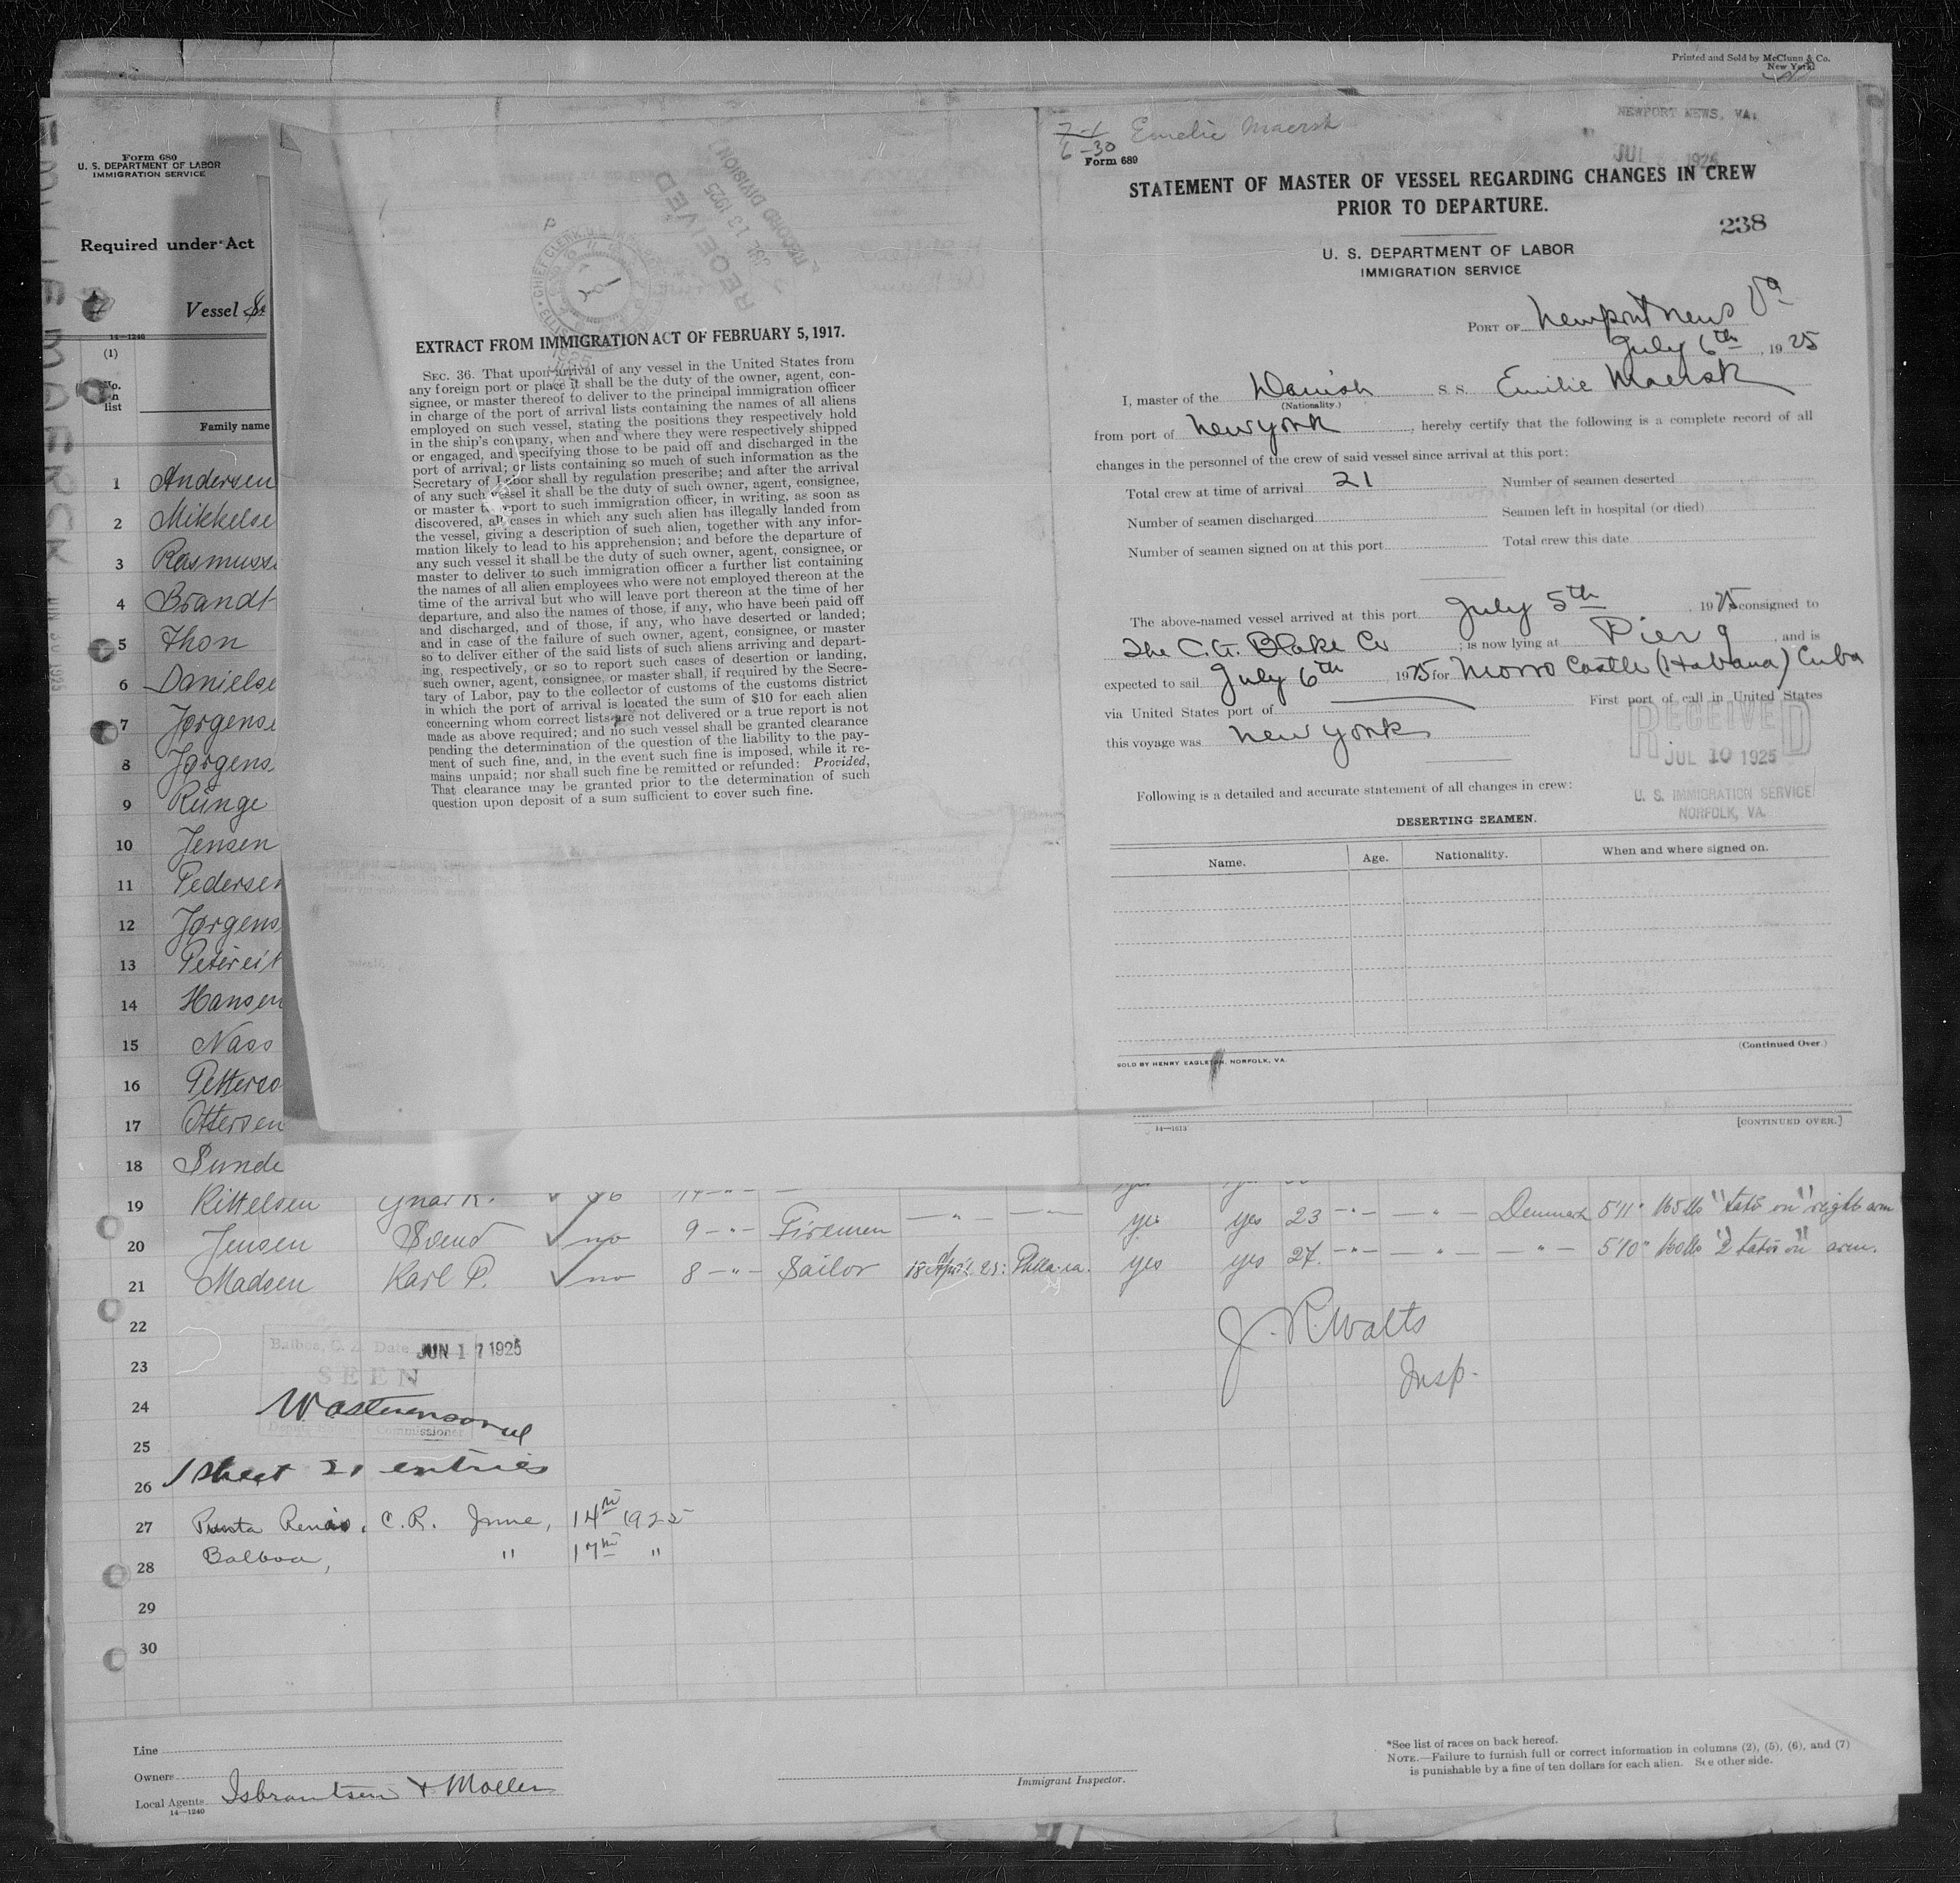 Printed and Sold by McClunn & Co.
New York
Form 680
U. S. DEPARTMENT OF LABOR
IMMIGRATION SERVICE
Required under Act
Vessel
14—1240
(1)
No.
on
list
Family name
1 Andersen
2 Mikkelse
3 Rasmusse
4 Brandt
5 Thon
6 Danielse
7 Jørgense
8 Jørgens
9 Runge
10 Jensen
11 Pedersen
12 Jørgens
13 Petereit
14 Hansen
15 Nass
16 Petterso
17 Ottersen
18 Sunde
EMILIE MAERSK
RECEIVED
JUL 13 1925
RECORD DIVISION
EXTRACT FROM IMMIGRATION ACT OF FEBRUARY 5, 1917.
SEC. 36. That upon arrival of any vessel in the United States from
any foreign port or place it shall be the duty of the owner, agent, con-
signee, or master thereof to deliver to the principal immigration officer
in charge of the port of arrival lists containing the names of all aliens
employed on such vessel, stating the positions they respectively hold
in the ship's company, when and where they were respectively shipped
or engaged, and specifying those to be paid off and discharged in the
port of arrival; or lists containing so much of such information as the
Secretary of Labor shall by regulation prescribe; and after the arrival
of any such vessel it shall be the duty of such owner, agent, consignee,
or master to report to such immigration officer, in writing, as soon as
discovered, all cases in which any such alien has illegally landed from
the vessel, giving a description of such alien, together with any infor-
mation likely to lead to his apprehension; and before the departure of
any such vessel it shall be the duty of such owner, agent, consignee, or
master to deliver to such immigration officer a further list containing
the names of all alien employees who were not employed thereon at the
time of the arrival but who will leave port thereon at the time of her
departure, and also the names of those, if any, who have been paid off
and discharged, and of those, if any, who have deserted or landed;
and in case of the failure of such owner, agent, consignee, or master
so to deliver either of the said lists of such aliens arriving and depart-
ing, respectively, or so to report such cases of desertion or landing,
such owner, agent, consignee, or master shall, if required by the Secre-
tary of Labor, pay to the collector of customs of the customs district
in which the port of arrival is located the sum of $10 for each alien
concerning whom correct lists are not delivered or a true report is not
made as above required; and no such vessel shall be granted clearance
pending the determination of the question of the liability to the pay-
ment of such fine, and, in the event such fine is imposed, while it re-
mains unpaid; nor shall such fine be remitted or refunded: Provided,
That clearance may be granted prior to the determination of such
question upon deposit of a sum sufficient to cover such fine.
7-1 Emelie Maersk
6-30
NEWPORT NEWS, VA.
JUL 1925
Form 689
STATEMENT OF MASTER OF VESSEL REGARDING CHANGES IN CREW
PRIOR TO DEPARTURE.
238
U. S. DEPARTMENT OF LABOR
IMMIGRATION SERVICE
PORT OF Newport News Va
July 6th, 1925
I, master of the Danish S. S. Emilie Maersk
(Nationality.)
from port of New York, hereby certify that the following is a complete record of all
changes in the personnel of the crew of said vessel since arrival at this port:
Total crew at time of arrival 21 Number of seamen deserted
Number of seamen discharged Seamen left in hospital (or died)
Number of seamen signed on at this port Total crew this date
The above-named vessel arrived at this port July 5th, 1925 consigned to
The C. G. Blake Co; is now lying at Pier 9, and is
expected to sail July 6th, 1925 for Morro Castle (Habana) Cuba
via United States port of First port of call in United States
this voyage was New York
RECEIVED
JUL 10 1925
U. S. IMMIGRATION SERVICE
NORFOLK, VA.
Following is a detailed and accurate statement of all changes in crew:
DESERTING SEAMEN.
Name. Age. Nationality. When and where signed on.
(Continued Over.)
SOLD BY HENRY EAGLETON, NORFOLK, VA.
14—1613
[CONTINUED OVER.]
19 Kittelsen
20 Jensen Svend ✓ no 9 -"- Firemen —"— —"— yes yes 23 -"- —"— Denmark 5'11" 165 lb "tato on" right arm
21 Madsen Karl P. ✓ no 8 -"- Sailor 18 April 25: Phila. Pa. yes yes 27. -"- —"— —"— 5'10" 160 lb "2 tatos on" arm.
22
23
24
25
26
27
28
29
30
J. R. Walts
Insp.
Balboa, C. Z. Date JUN 17 1925
SEEN
Commissioner
1 sheet 21 entries
Punta Renas, C.R. June, 14th 1925
Balboa, " 17th "
Line
Owners
Local Agents Isbrantsen & Moller
14—1240
Immigrant Inspector.
*See list of races on back hereof.
NOTE.—Failure to furnish full or correct information in columns (2), (5), (6), and (7)
is punishable by a fine of ten dollars for each alien. See other side.